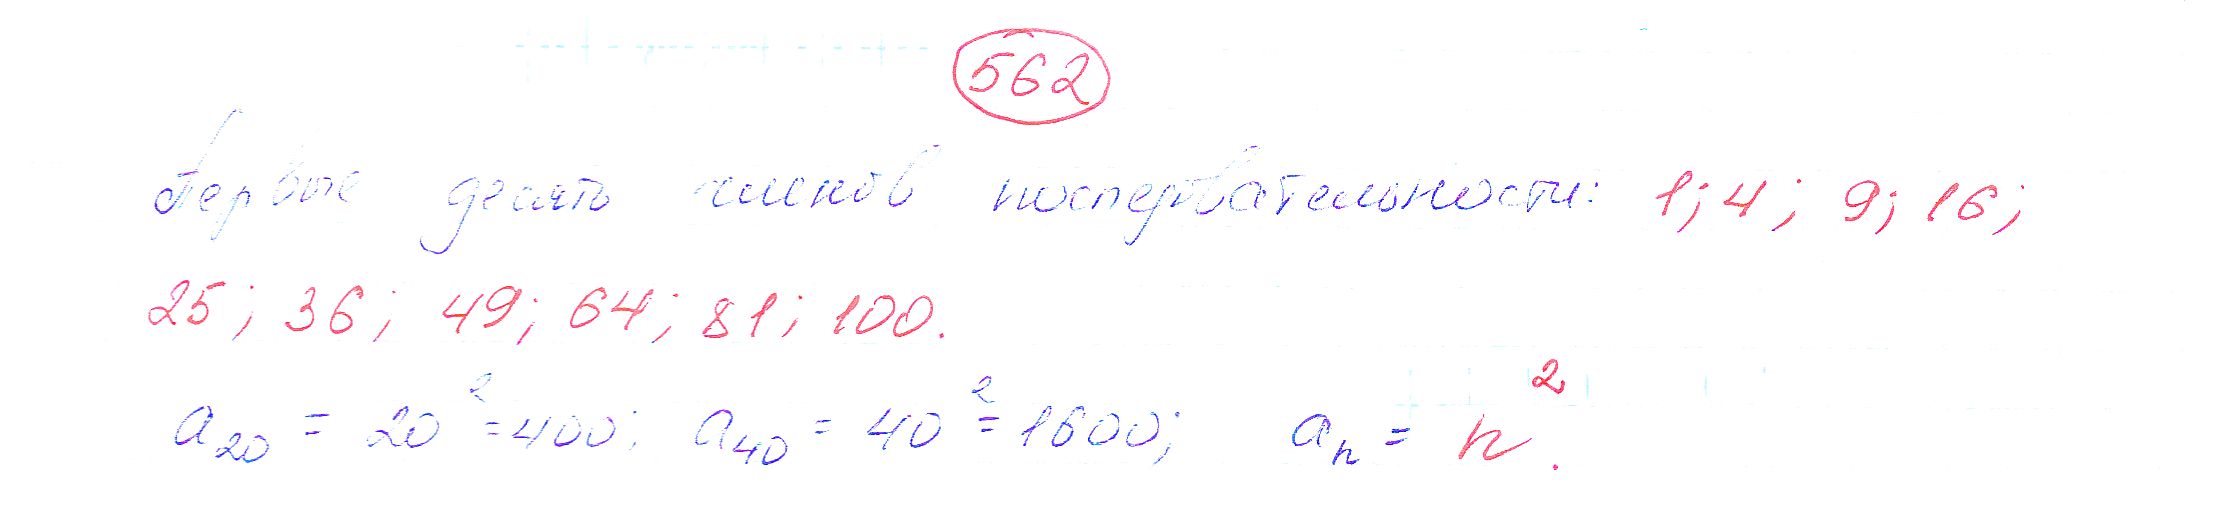 562
Первые десять членов последовательности: 1; 4; 9; 16;
25; 36; 49; 64; 81; 100.
a₂₀ = 20² = 400; a₄₀ = 40² = 1600; aₙ = n².